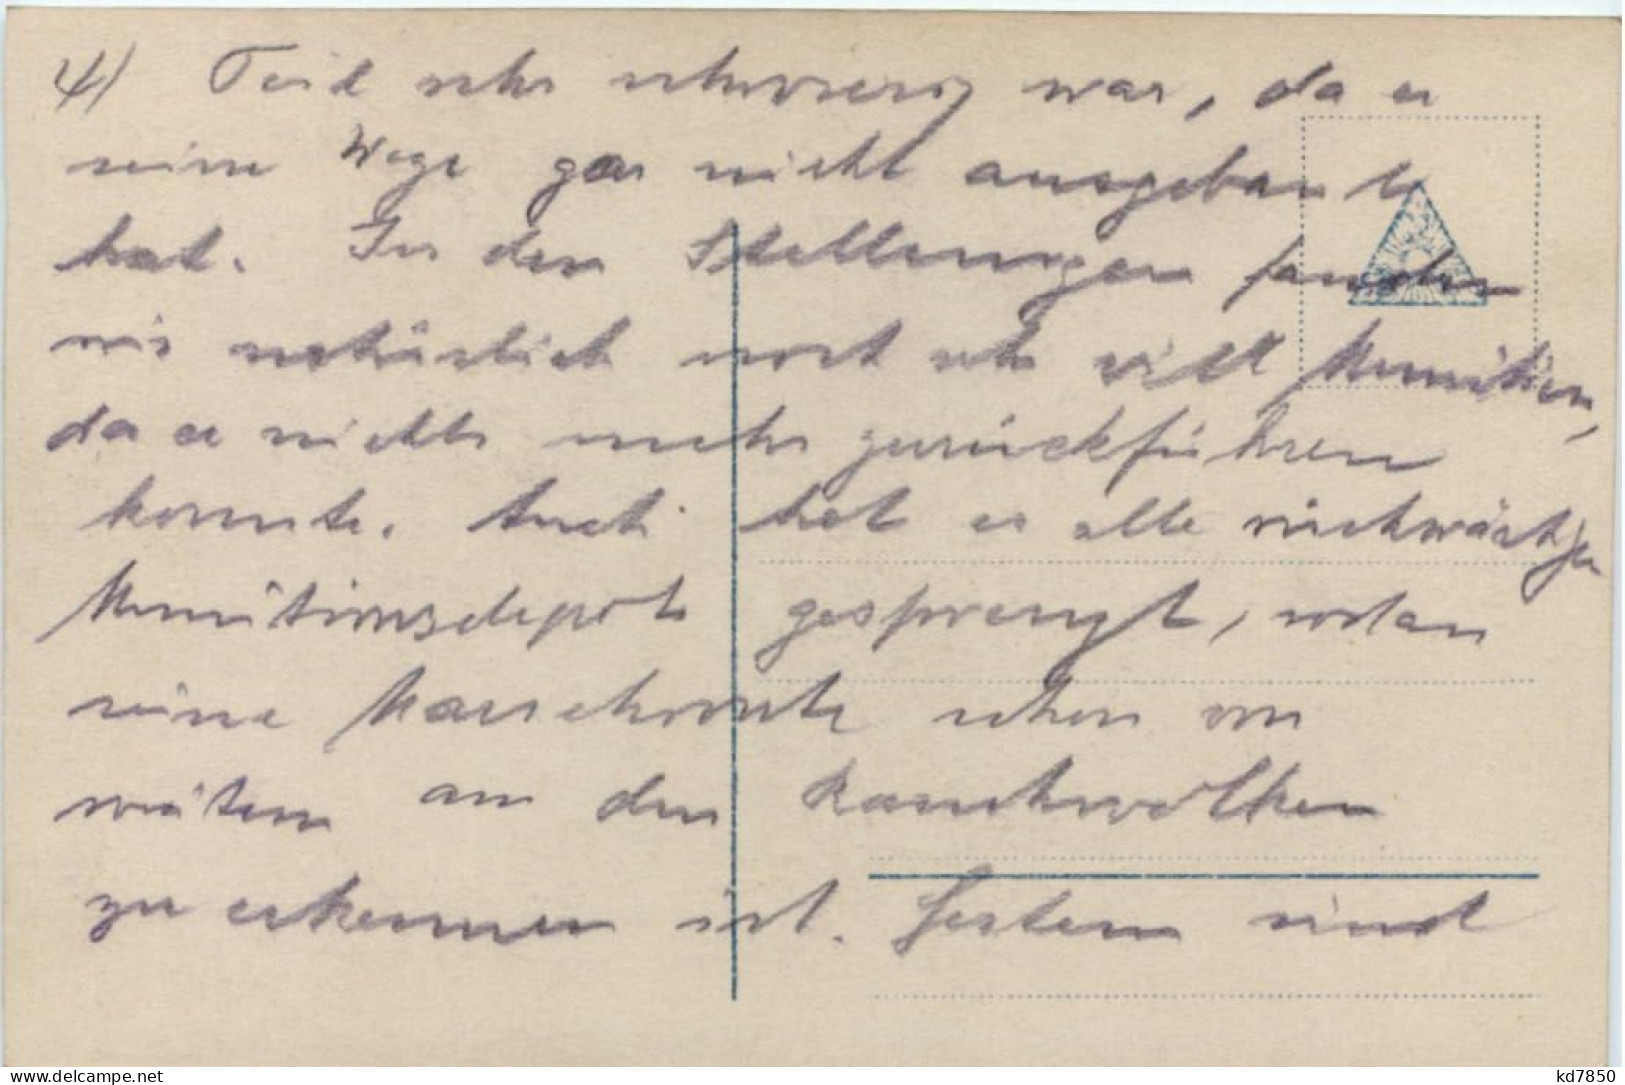 4) Teil sehr schwierig war, da er
seine Wege gar nicht ausgebaut
hat. In den Stellungen fanden
wir natürlich noch sehr viel Munition,
da er nichts mehr zurückführen
konnte. Auch hat er alle rückwärtigen
Munitionsdepots gesprengt, sodass
seine Marschroute schon von
weitem an den Rauchwolken
zu erkennen ist. Gestern sind
www.delcampe.net
kd7850